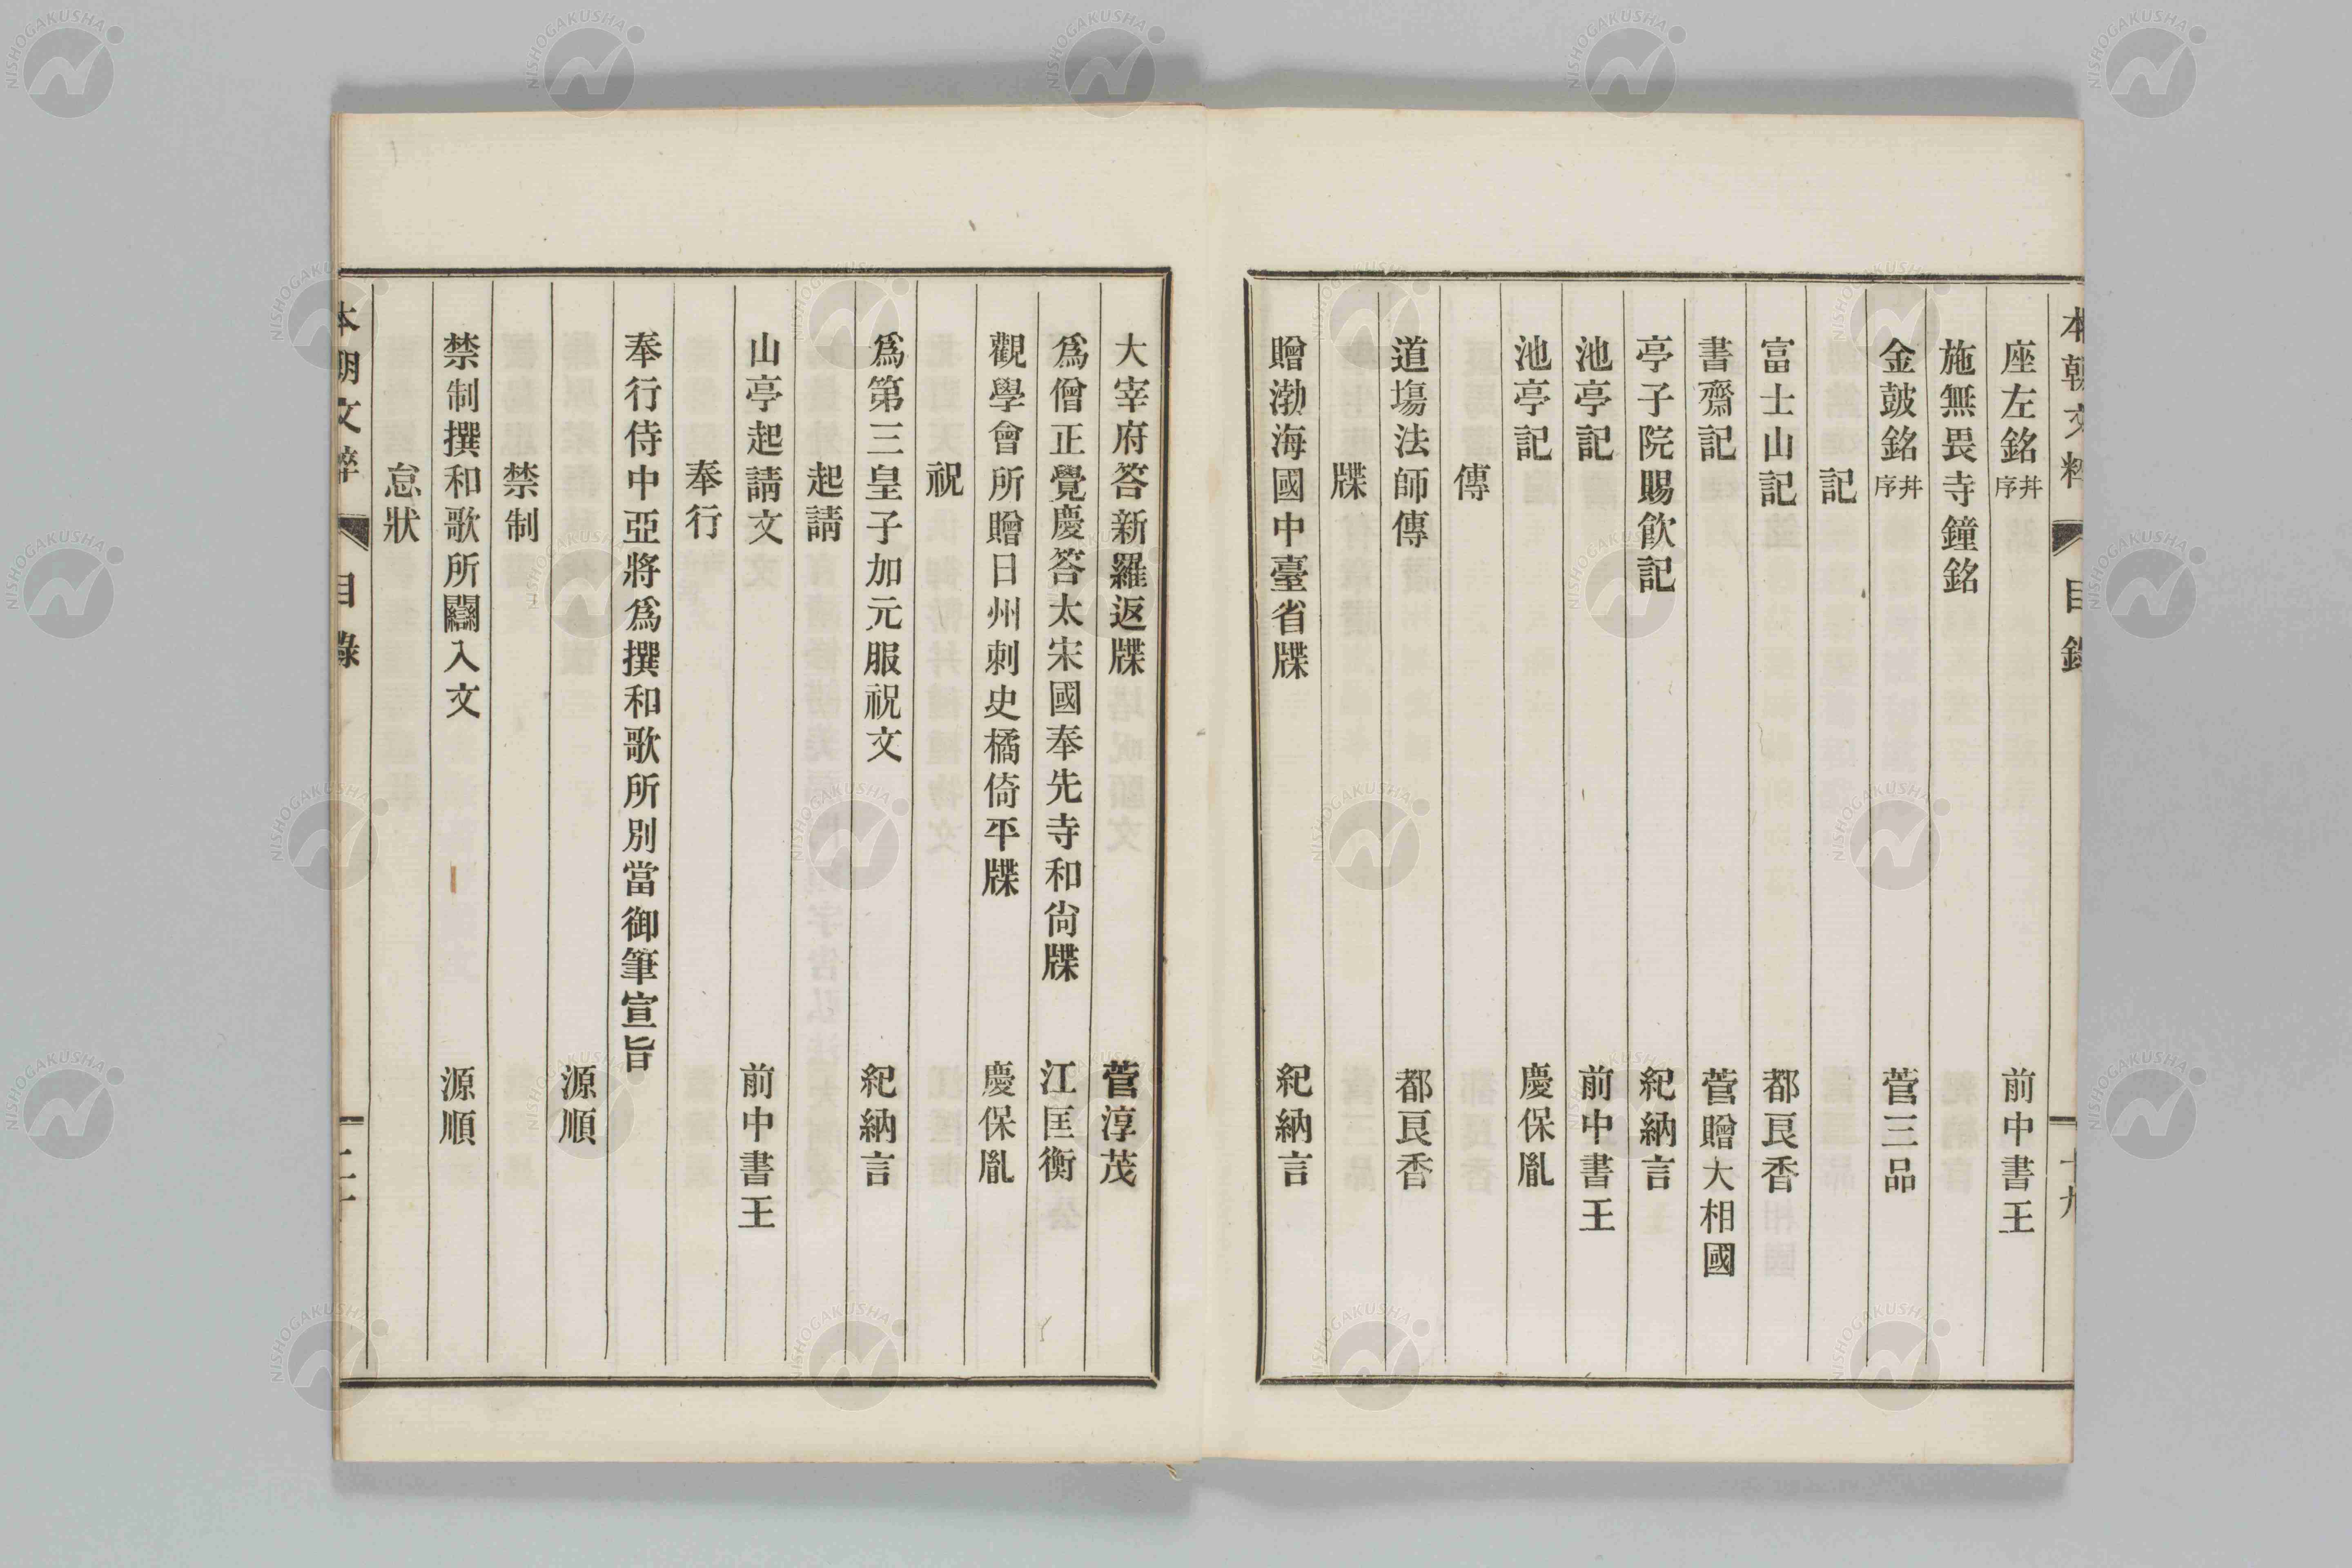 本朝文粹 目錄 十九
座左銘 幷序 前中書王
施無畏寺鐘銘
金鼓銘 幷序 菅三品
記
富士山記 都良香
書齋記 菅贈大相國
亭子院賜飮記 紀納言
池亭記 前中書王
池亭記 慶保胤
傳
道塲法師傳 都良香
牒
贈渤海國中臺省牒 紀納言
大宰府答新羅返牒 菅淳茂
爲僧正覺慶答太宋國奉先寺和尙牒 江匡衡
觀學會所贈日州刺史橘倚平牒 慶保胤
祝
爲第三皇子加元服祝文 紀納言
起請
山亭起請文 前中書王
奉行
奉行侍中亞將爲撰和歌所別當御筆宣旨
源順
禁制
禁制撰和歌所闌入文 源順
怠狀
本朝文粹 目錄 二十
NISHOGAKUSHA